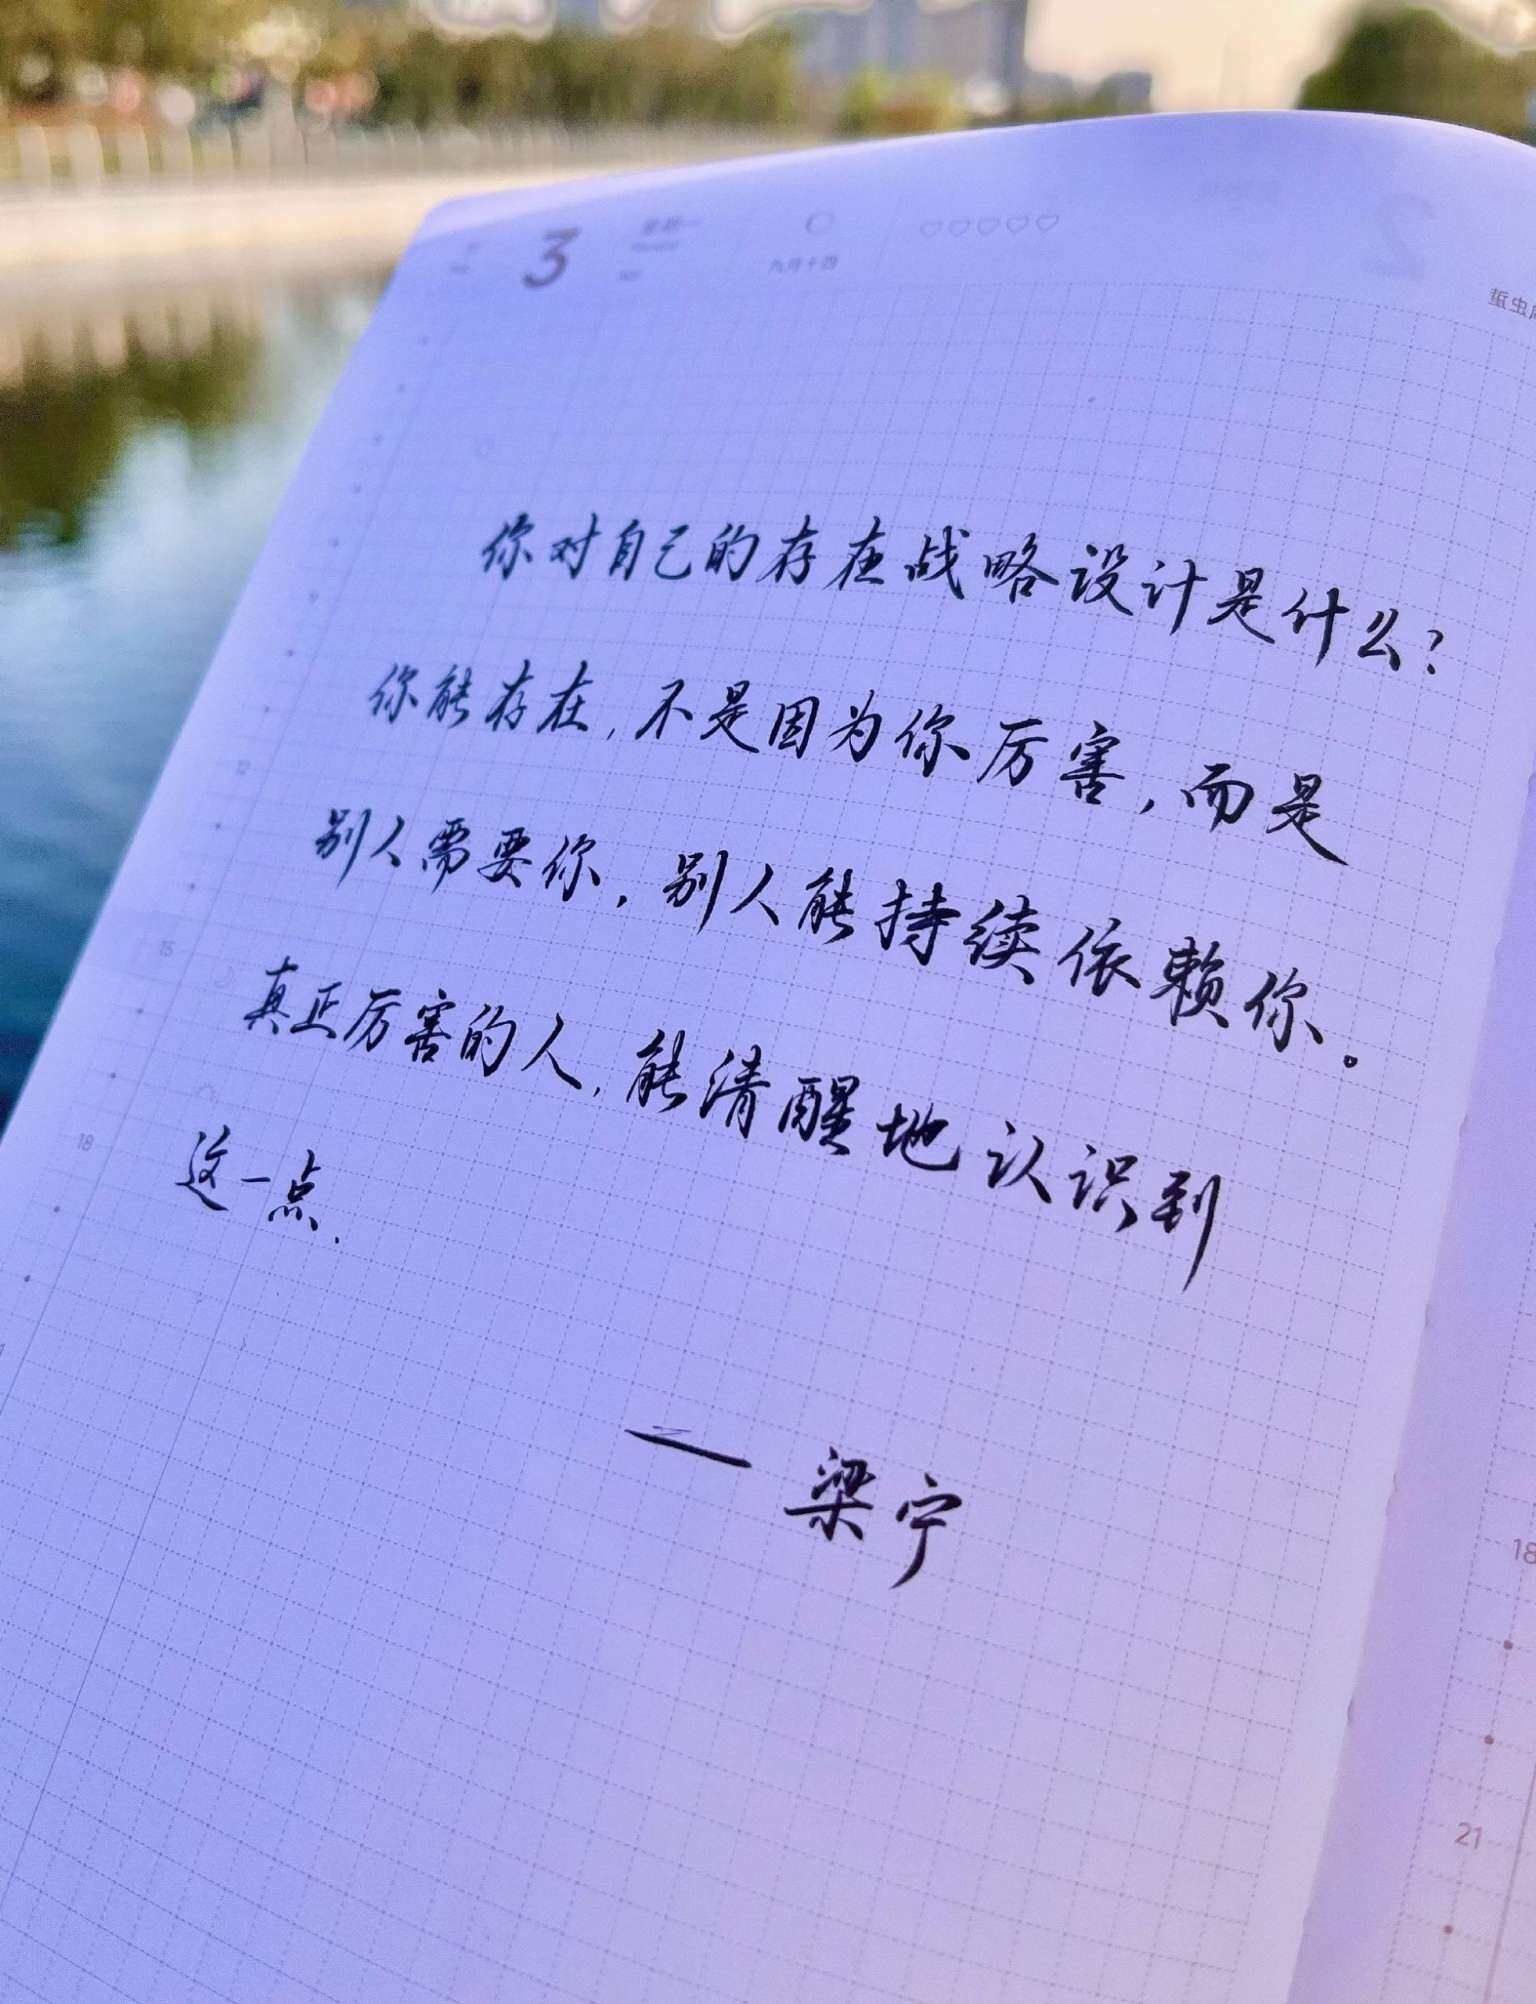 3
九月十四
2
蜇虫
你对自己的存在战略设计是什么?
你能存在,不是因为你厉害,而是
别人需要你,别人能持续依赖你。
真正厉害的人,能清醒地认识到
这一点.
— 梁宁
12
15
18
18
21